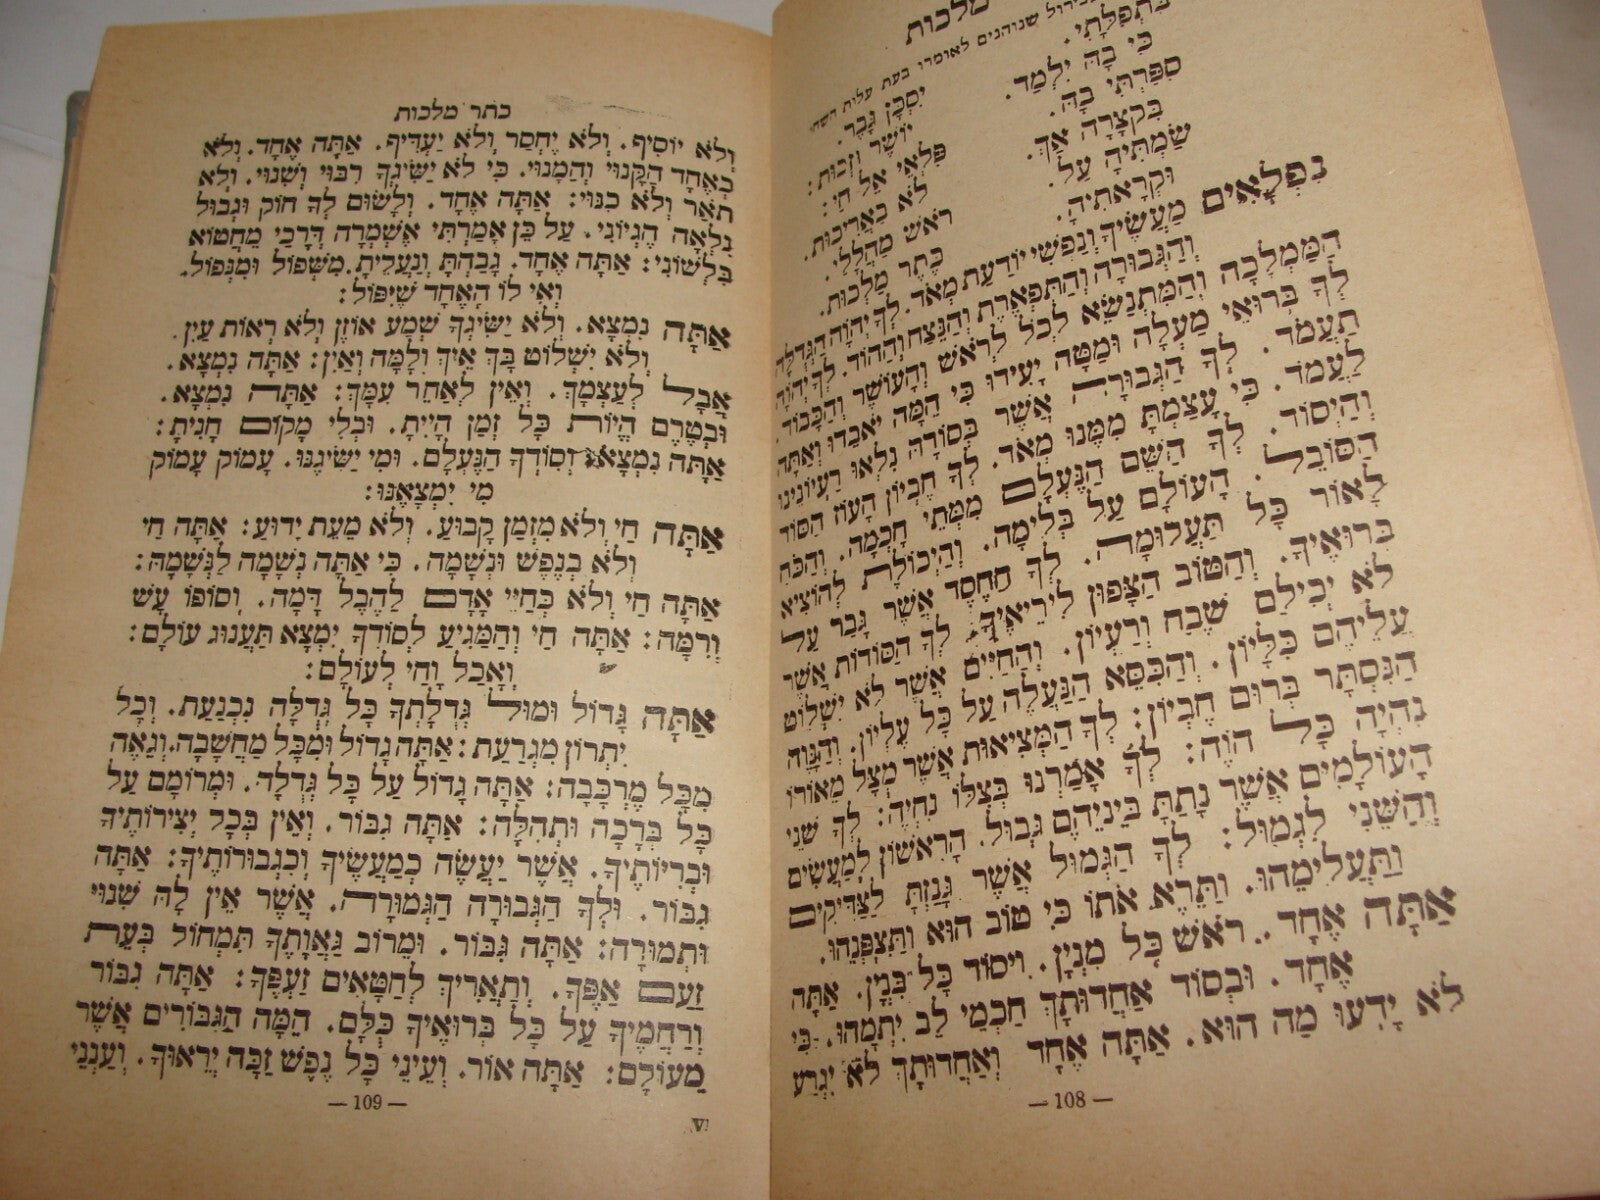 מלכות
שנוהגים לאומרו בעת עלית השחר
בִּתְפִלָּתִי.
כִּי בָהּ יִלְמַד. יִסְכָּן גָּבֶר.
סִפַּרְתִּי בָהּ. יוֹשֶׁר וְזָכוּת:
בִּקְצָרָה אַךְ. פִּלְאֵי אֵל חַי:
שַׂמְתִּיהָ עַל. לֹא בַאֲרִיכוּת.
וּקְרָאתִיהָ. רֹאשׁ מַהֲלָלַי.
כֶּתֶר מַלְכוּת.
נִפְלָאִים מַעֲשֶׂיךָ וְנַפְשִׁי יוֹדַעַת מְאֹד. לְךָ יְהוָֹה הַגְּדֻלָּה
וְהַגְּבוּרָה וְהַתִּפְאֶרֶת וְהַנֵּצַח וְהַהוֹד. לְךָ יְהוָֹה
הַמַּמְלָכָה וְהַמִּתְנַשֵּׂא לְכֹל לְרֹאשׁ וְהָעוֹשֶׁר וְהַכָּבוֹד.
לְךָ בְּרוּאֵי מַעְלָה וּמַטָּה יָעִידוּ כִּי הֵמָּה יֹאבֵדוּ וְאַתָּה
תַעֲמֹד. לְךָ הַגְּבוּרָה אֲשֶׁר בְּסוֹדָהּ נִלְאוּ רַעְיוֹנֵינוּ
לַעֲמֹד. כִּי עָצַמְתָּ מִמֶּנּוּ מְאֹד. לְךָ חֶבְיוֹן הָעוֹז הַסּוֹד
וְהַיְסוֹד. לְךָ הַשֵּׁם הַנֶּעְלָם מִמְּתֵי חָכְמָה. וְהַכֹּחַ
הַסּוֹבֵל. הָעוֹלָם עַל בְּלִימָה. וְהַיְכוֹלֶת לְהוֹצִיא
לָאוֹר כָּל תַּעֲלוּמָה. לְךָ הַחֶסֶד אֲשֶׁר גָּבַר עַל
בְּרוּאֶיךָ. וְהַטּוֹב הַצָּפוּן לִירֵיאֶיךָ. לְךָ הַסּוֹדוֹת אֲשֶׁר
לֹא יְכִילֵם שֵׂכֶל וְרַעְיוֹן. וְהַחַיִּים אֲשֶׁר לֹא יִשְׁלוֹט
עֲלֵיהֶם כִּלָּיוֹן. וְהַכִּסֵּא הַנַּעֲלֶה עַל כָּל עֶלְיוֹן. וְהַנָּוֶה
הַנִּסְתָּר בְּרוּם חֶבְיוֹן: לְךָ הַמְּצִיאוּת אֲשֶׁר מִצֵּל מְאוֹרוֹ
נִהְיָה כָּל הוֹוֶה: לְךָ אָמַרְנוּ בְּצִלּוֹ נִחְיֶה: לְךָ שְׁנֵי
הָעוֹלָמִים אֲשֶׁר נָתַתָּ בֵּינֵיהֶם גְּבוּל. הָרִאשׁוֹן לְמַעֲשִׂים
וְהַשֵּׁנִי לִגְמוּל: לְךָ הַגְּמוּל אֲשֶׁר גָּנַזְתָּ לַצַּדִּיקִים
וַתַּעֲלִימֵהוּ. וַתֵּרֶא אֹתוֹ כִּי טוֹב הוּא וַתִּצְפְּנֵהוּ.
אַתָּה אֶחָד. רֹאשׁ כָּל מִנְיָן. וִיסוֹד כָּל בִּנְיָן. אַתָּה
אֶחָד. וּבְסוֹד אַחְדוּתְךָ חַכְמֵי לֵב יִתְמָהוּ. כִּי
לֹא יָדְעוּ מַה הוּא. אַתָּה אֶחָד וְאַחְדוּתְךָ לֹא יִגְרַע
— 108 —
כתר מלכות
וְלֹא יוֹסִיף. וְלֹא יֶחְסַר וְלֹא יַעְדִּיף. אַתָּה אֶחָד. וְלֹא
כְאֶחָד הַקָּנוּי וְהַמָּנוּי. כִּי לֹא יַשִּׂיגְךָ רִבּוּי וְשִׁנּוּי. וְלֹא
תֹאַר וְלֹא כִנּוּי: אַתָּה אֶחָד. וְלָשׂוּם לְךָ חוֹק וּגְבוּל
נִלְאָה הֶגְיוֹנִי. עַל כֵּן אָמַרְתִּי אֶשְׁמְרָה דְרָכַי מֵחֲטוֹא
בִלְשׁוֹנִי: אַתָּה אֶחָד. גָּבַהְתָּ וְנַעֲלֵיתָ מִשְּׁפוֹל וּמִנְּפוֹל.
וְאִי לוֹ הָאֶחָד שֶׁיִּפּוֹל:
אַתָּה נִמְצָא. וְלֹא יַשִּׂיגְךָ שֵׁמַע אוֹזֶן וְלֹא רְאוּת עָיִן.
וְלֹא יִשְׁלוֹט בְּךָ אֵיךְ וְלָמָּה וְאָיִן: אַתָּה נִמְצָא.
אֲבָל לְעַצְמָךְ. וְאֵין לְאַחֵר עִמָּךְ: אַתָּה נִמְצָא.
וּבְטֶרֶם הֱיוֹת כָּל זְמַן הָיִיתָ. וּבְלִי מָקוֹם חָנִיתָ:
אַתָּה נִמְצָא וְסוֹדְךָ הַנֶּעְלָם. וּמִי יַשִּׂיגֶנּוּ. עָמוֹק עָמוֹק
מִי יִמְצָאֶנּוּ:
אַתָּה חַי וְלֹא מִזְּמַן קָבוּעַ. וְלֹא מֵעֵת יָדוּעַ: אַתָּה חַי
וְלֹא בְנֶפֶשׁ וּנְשָׁמָה. כִּי אַתָּה נְשָׁמָה לַנְּשָׁמָה:
אַתָּה חַי וְלֹא כְּחַיֵּי אָדָם לַהֶבֶל דָּמָה. וְסוֹפוֹ עָשׁ
וְרִמָּה: אַתָּה חַי וְהַמַּגִּיעַ לְסוֹדְךָ יִמְצָא תַּעֲנוּג עוֹלָם:
וְאָכַל וָחַי לְעוֹלָם:
אַתָּה גָּדוֹל וּמוּל גְּדֻלָּתְךָ כָּל גְּדֻלָּה נִכְנַעַת. וְכָל
יִתְרוֹן מִגְרַעַת: אַתָּה גָדוֹל וּמִכָּל מַחֲשָׁבָה. וְגֵאֶה
מִכָּל מֶרְכָּבָה: אַתָּה גָדוֹל עַל כָּל גְּדֻלָּה. וּמְרוֹמָם עַל
כָּל בְּרָכָה וּתְהִלָּה: אַתָּה גִבּוֹר. וְאֵין בְּכָל יְצִירוֹתֶיךָ
וּבְרִיּוֹתֶיךָ. אֲשֶׁר יַעֲשֶׂה כְמַעֲשֶׂיךָ וְכִגְבוּרוֹתֶיךָ: אַתָּה
גִבּוֹר. וּלְךָ הַגְּבוּרָה הַגְּמוּרָה. אֲשֶׁר אֵין לָהּ שִׁנּוּי
וּתְמוּרָה: אַתָּה גִּבּוֹר. וּמֵרוֹב גַּאֲוָתְךָ תִּמְחוֹל בְּעֵת
זַעַם אַפֶּךָ. וְתַאֲרִיךְ לְחַטָּאִים זַעְפֶּךָ: אַתָּה גִבּוֹר
וְרַחֲמֶיךָ עַל כָּל בְּרוּאֶיךָ כֻּלָּם. הֵמָּה הַגִּבּוֹרִים אֲשֶׁר
מֵעוֹלָם: אַתָּה אוֹר. וְעֵינֵי כָּל נֶפֶשׁ זַכָּה יִרְאוּךָ. וְעַנְנֵי
— 109 —
V